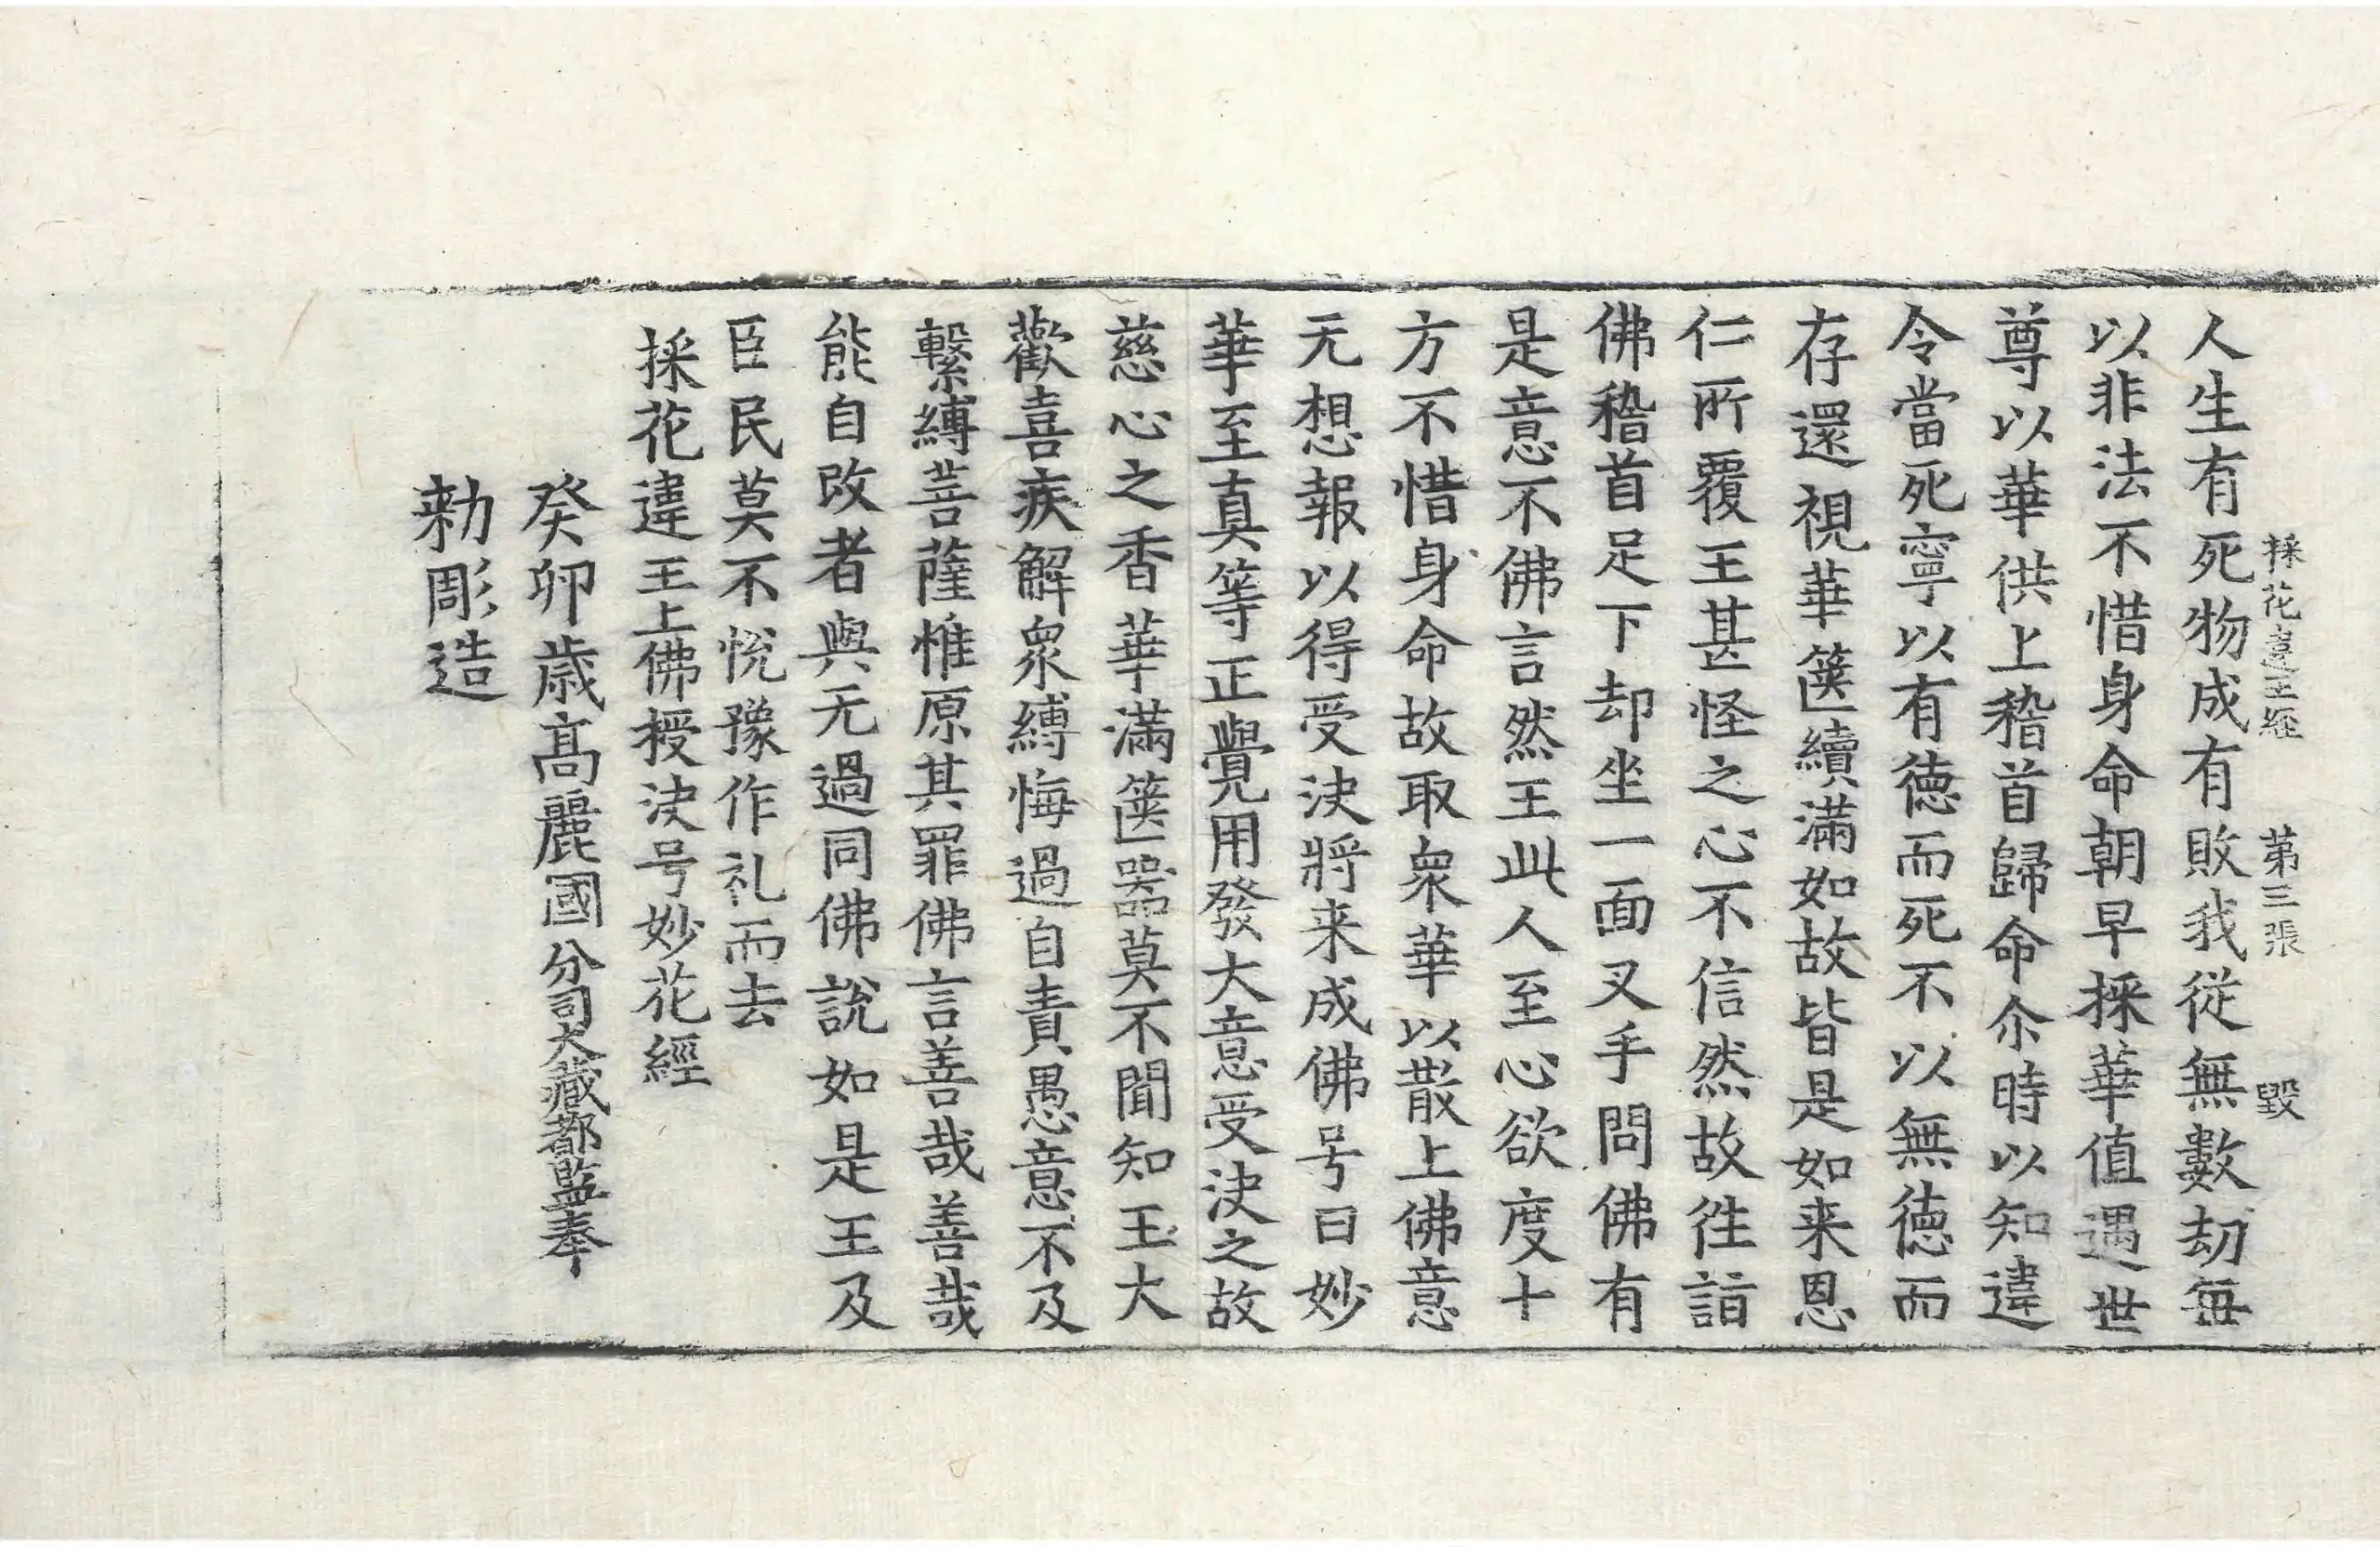 採花違王經 第三張 毀
人生有死物成有敗我從無數劫每
以非法不惜身命朝早採華值遇世
尊以華供上稽首歸命尒時以知違
令當死寧以有德而死不以無德而
存還視華篋續滿如故皆是如来恩
仁所覆王甚怪之心不信然故徃詣
佛稽首足下却坐一面叉手問佛有
是意不佛言然王此人至心欲度十
方不惜身命故取衆華以散上佛意
无想報以得受决將来成佛号曰妙
華至真等正覺用發大意受决之故
慈心之香華滿篋器莫不聞知王大
歡喜疾解衆縛悔過自責愚意不及
繫縛菩薩惟原其罪佛言善哉善哉
能自改者與无過同佛說如是王及
臣民莫不悅豫作礼而去
採花違王上佛授决号妙花經
癸卯歳高麗國分司大藏都監奉
勑彫造